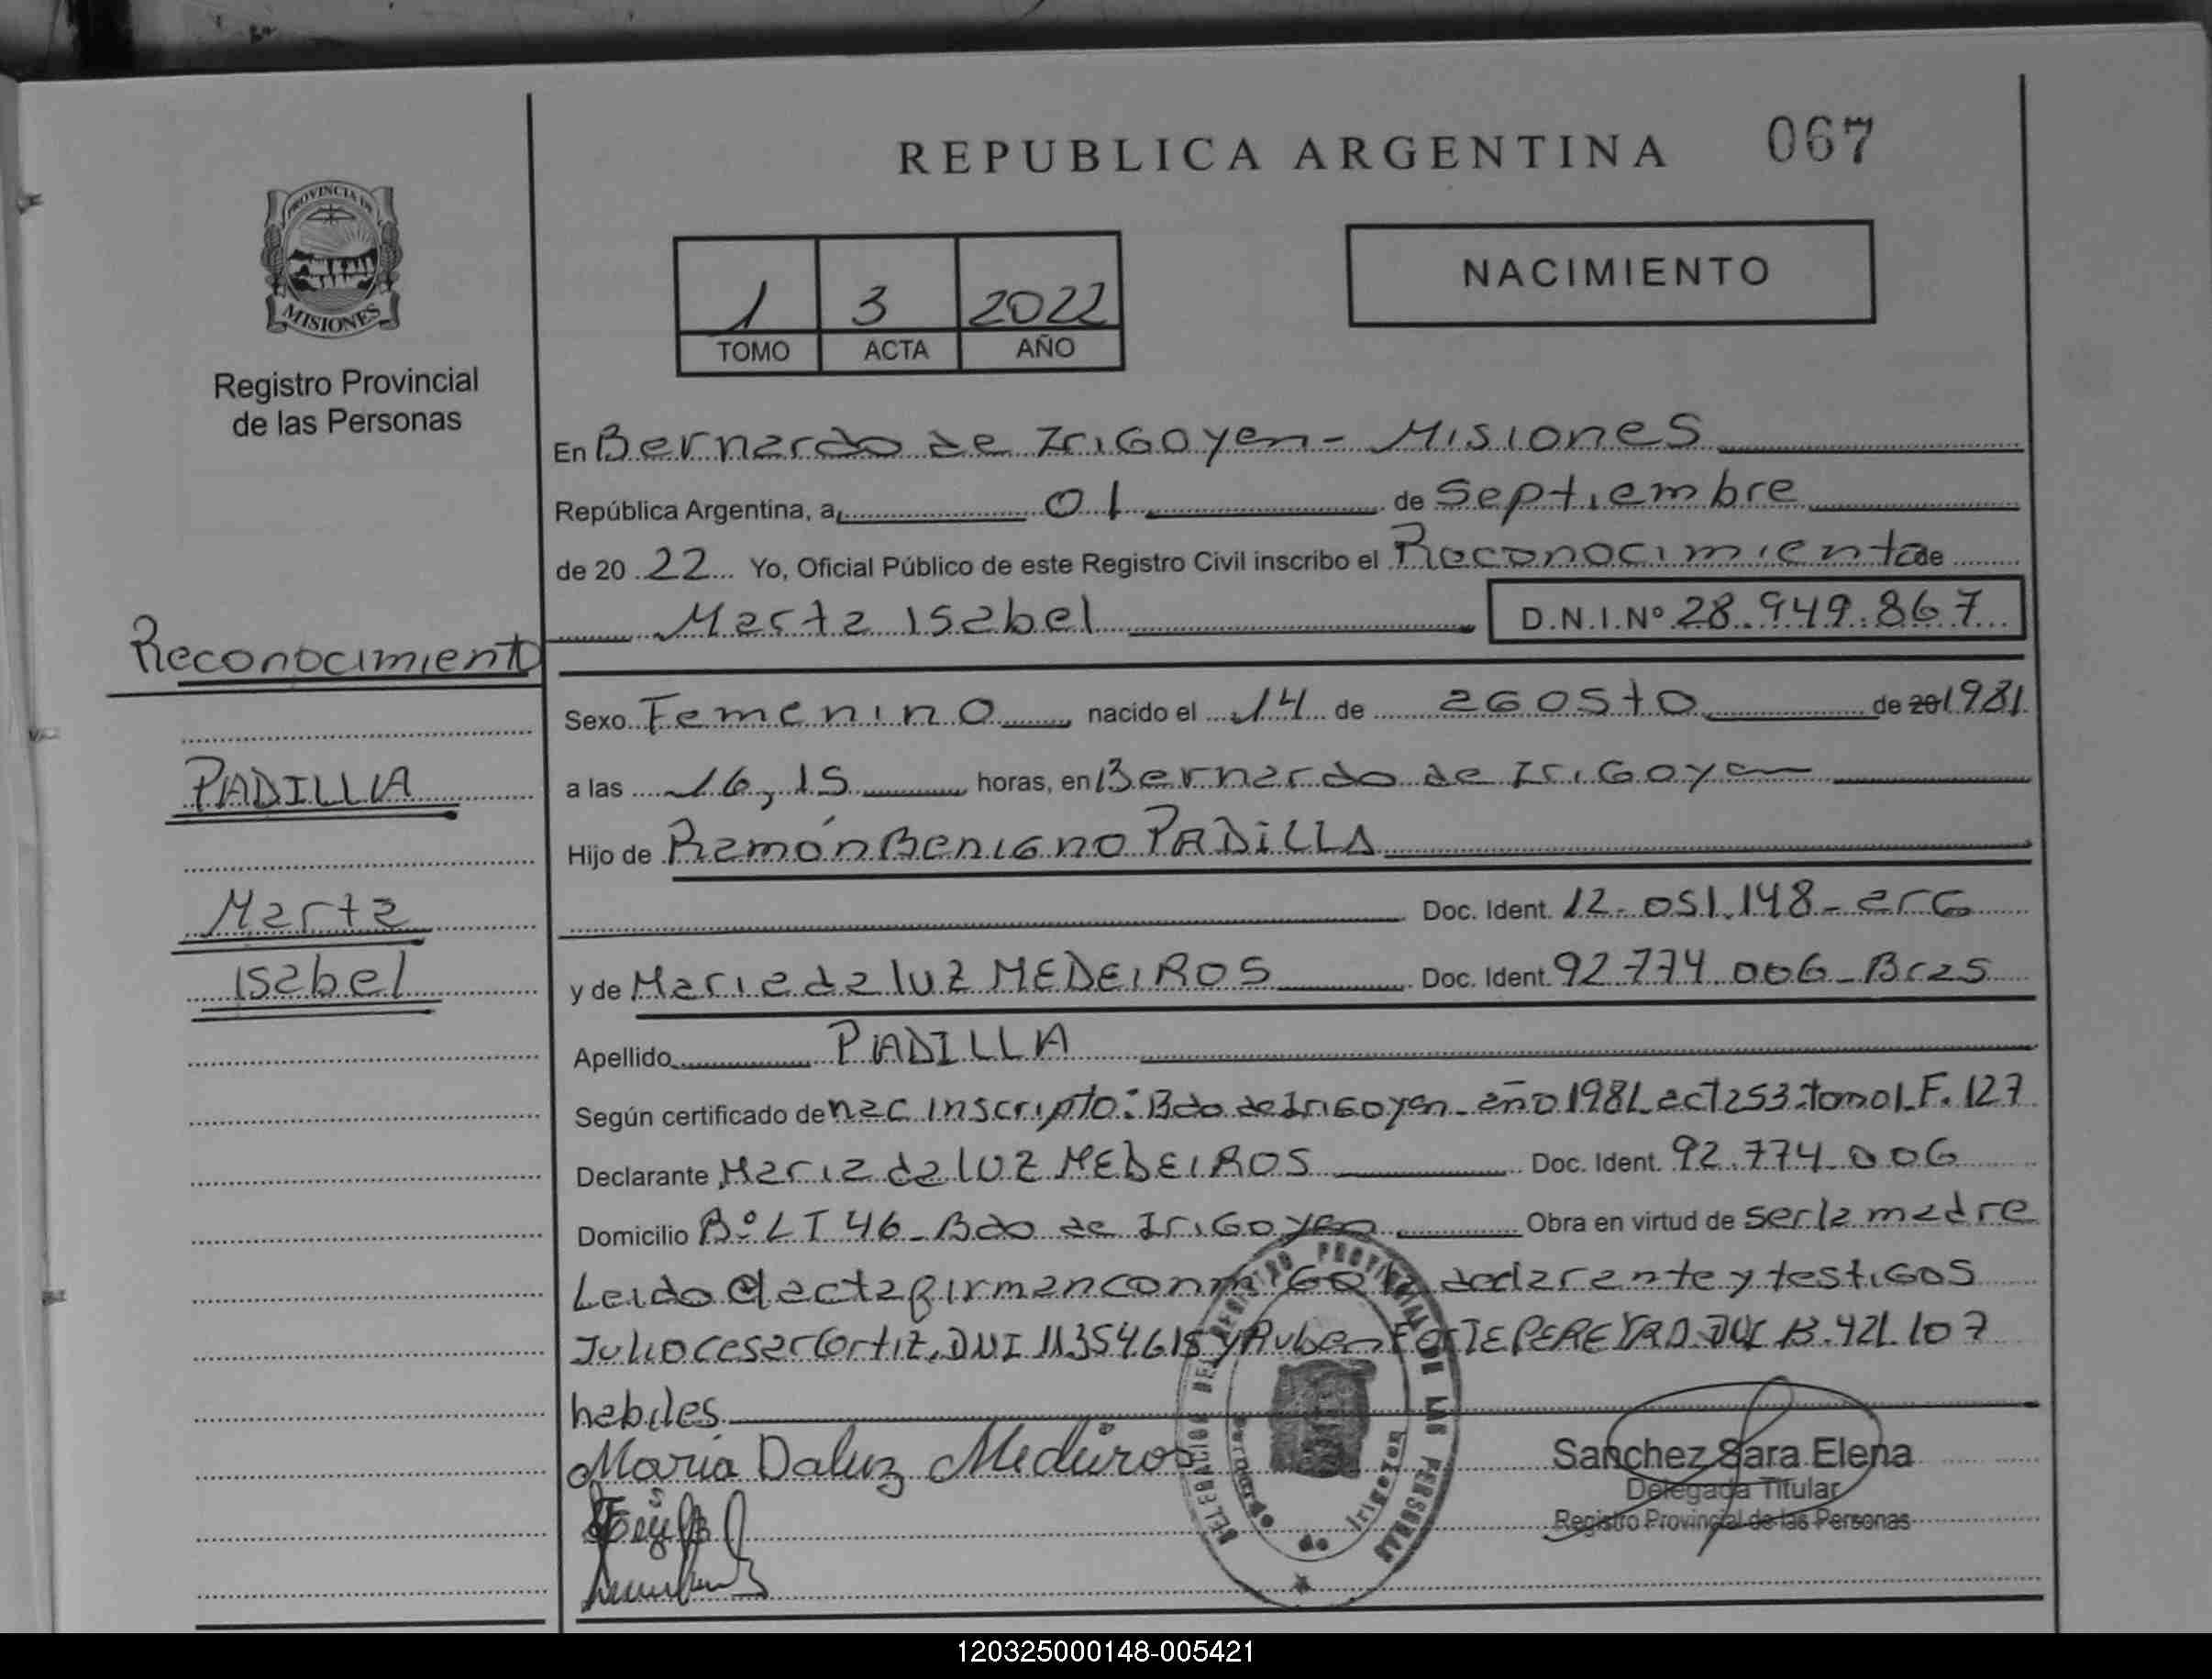 REPUBLICA ARGENTINA 067
PROVINCIA DE
MISIONES
Registro Provincial
de las Personas
1 3 2022
TOMO ACTA AÑO
NACIMIENTO
En Bernardo de Irigoyen - Misiones
República Argentina, a 01 de Septiembre
de 20 22 Yo, Oficial Público de este Registro Civil inscribo el Reconocimiento de
Marta Isabel D.N.I.Nº 28.949.867
Reconocimiento
Sexo Femenino nacido el 14 de agosto de 20 1981
PADILLA
a las 16,15 horas, en Bernardo de Irigoyen
Hijo de Ramón Benigno PADILLA
Marta
Doc. Ident. 12.051.148 - arg
Isabel
y de Maria da luz MEDEIROS Doc. Ident. 92.774.006 - Bras
Apellido PADILLA
Según certificado de nac inscripto: Bdo de Irigoyen - año 1981 acta 253 tomo 1 F. 127
Declarante Maria da luz MEDEIROS Doc. Ident. 92.774.006
Domicilio Bº LT 46 - Bdo de Irigoyen Obra en virtud de ser la madre
Leido el acta firman conmigo la declarante y testigos
Julio cesar Cortiz, DNI 11354618 y Ruben PEREYRA DNI 13.421.107
habiles
María Daluz Medeiros
DELEGACION DEL REGISTRO PROVINCIAL DE LAS PERSONAS
Bernardo de Irigoyen
Sanchez Sara Elena
Delegada Titular
Registro Provincial de las Personas
120325000148-005421